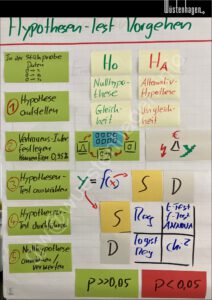 Wüstenhagen
Hypothesen-Test Vorgehen
In der Stichprobe
Daten
H0
Nullhypo-
these
Gleich-
heit
HA
Alternativ-
Hypothese
Ungleich-
heit
1 Hypothese
aufstellen
2 Vertrauens-Inter.
festlegen
Konvention 0,95%
3 Hypothesen-
Test auswählen
y = f(x)
S D
4 Hypothesen-
Test durchführen
S Reg t-Test
ANNOVA
5 Nullhypothese
annehmen/
verwerfen
D logist
Reg chi²
p >= 0,05
p < 0,05